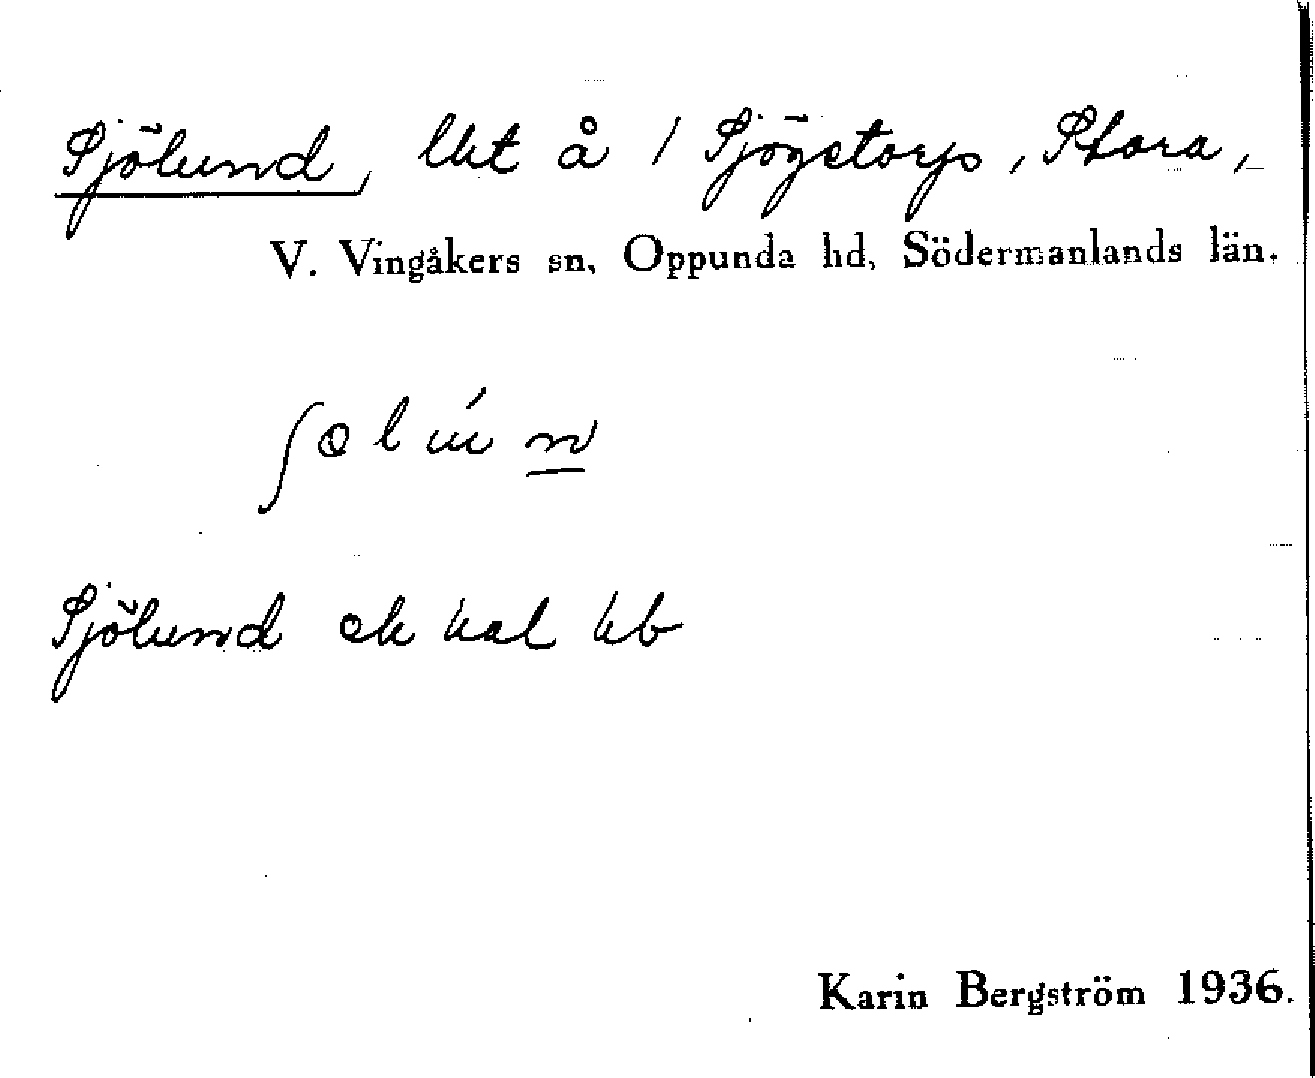 Sjölund, lht å / Sjögetorp, Stora,
V. Vingåkers sn, Oppunda hd, Södermanlands län.
Sjölund ek kal hb
Karin Bergström 1936.